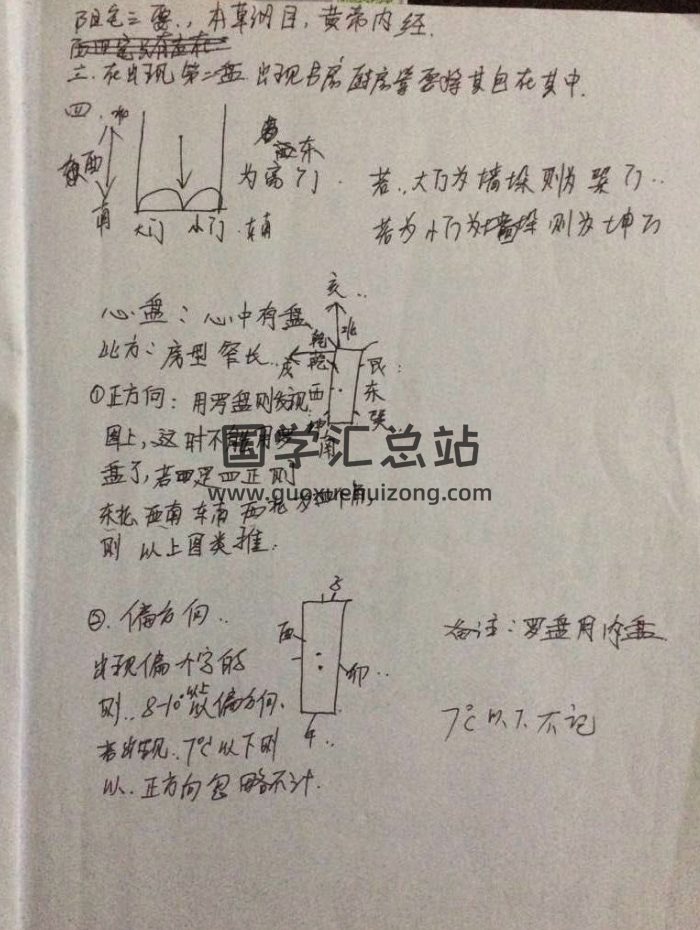 阳宅三要.，本草纲目，黄帝内经.
三.在出现第二盘.出现书房厨房掌要将其包在其中.
四.
西 东
为离门.
若..大门为墙垛则为巽门..
南
大门 小门 东南
若为小门为墙垛则为坤门
心盘：心中有盘.
亥..
北
北方：房型窄长..
乾
戌 乾 艮
①正方向：用罗盘则发现
西 东
巽
图上，这时不能用
南
盘了，若四足四正则
东北 西南 东南 西北为四个角，
则 以上图类推.
国学汇总站
www.guoxuehuizong.com
②.偏方向..
酉
备注：罗盘用内盘
出现偏一个字的
卯..
则..8-10°以上以偏方向.
午..
7℃以下不记
若出现.7℃以下则
以.正方向忽略不计.